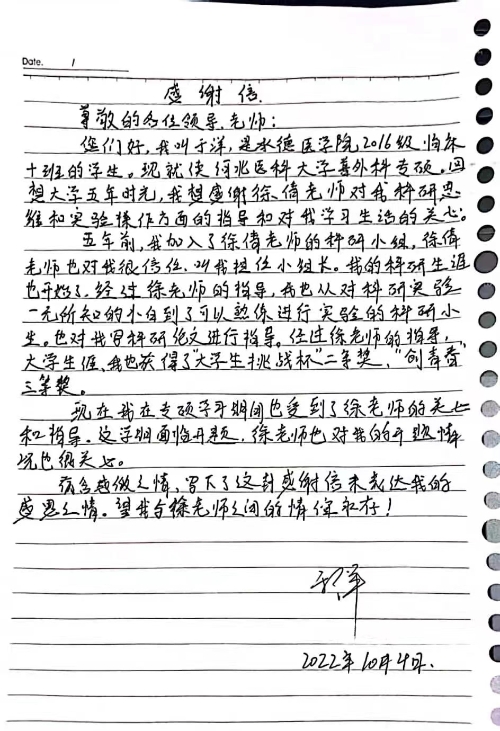 Date. 1
感谢信
尊敬的各位领导、老师：
您们好，我叫于洋，是承德医学院2016级临床
十班的学生。现就读河北医科大学普外科专硕。回
想大学五年时光，我想感谢徐倩老师对我科研思
维和实验操作方面的指导和对我学习生活的关心。
五年前，我加入了徐倩老师的科研小组，徐倩
老师也对我很信任，叫我担任小组长。我的科研生涯
也开始了，经过徐老师的指导，我也从对科研实验
一无所知的小白到了可以熟练进行实验的科研小
生。也对我写科研论文进行指导。经过徐老师的指导，
大学生涯，我也获得了“大学生挑战杯”二等奖，“创青春
三等奖。
现在我在专硕学习期间也受到了徐老师的关心
和指导。这学期面临开题，徐老师也对我的开题情
况也很关心。
满含感激之情，写下了这封感谢信来表达我的
感恩之情。望我与徐老师之间的情谊永存！
于洋
2022年10月4日.